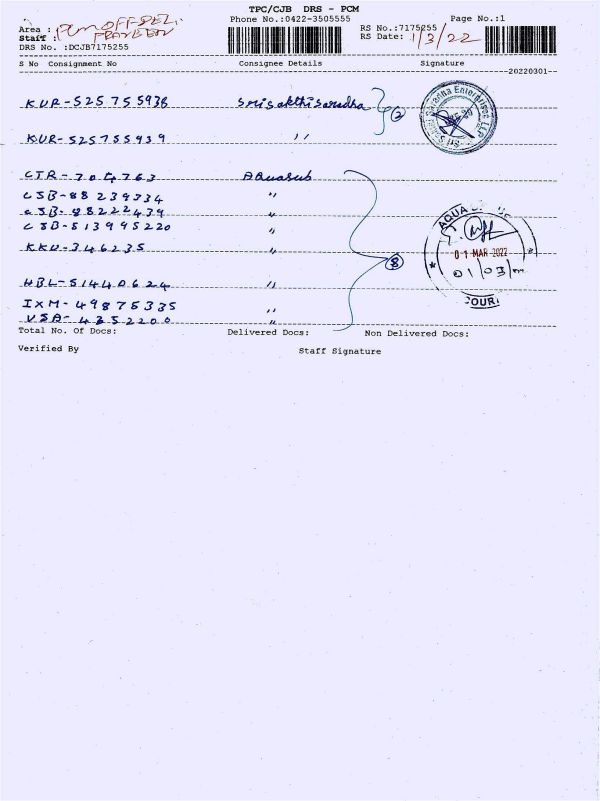 TPC/CJB DRS - PCM
Phone No.:0422-3505555 Page No.:1
Area : PCM OFF DELI.
Staff : PRAVEEN
RS No.:7175255
RS Date: 1/3/22
DRS No. :DCJB7175255
S No Consignment No Consignee Details Signature
20220301
KUR-525755938 Srisakthisaradha 2
KUR-525755939 "
Saradha Enterprises LLP
CTR-704763 Aquasub
CSB-88239334 "
CSB-88222439 "
CSB-513995220 "
KKD-346235 "
8
HBL-51440624 "
IXM-49875335 "
VSA-4352200 "
AQUA
01 MAR 2022
01/03/
COURI
Total No. Of Docs: Delivered Docs: Non Delivered Docs:
Verified By Staff Signature